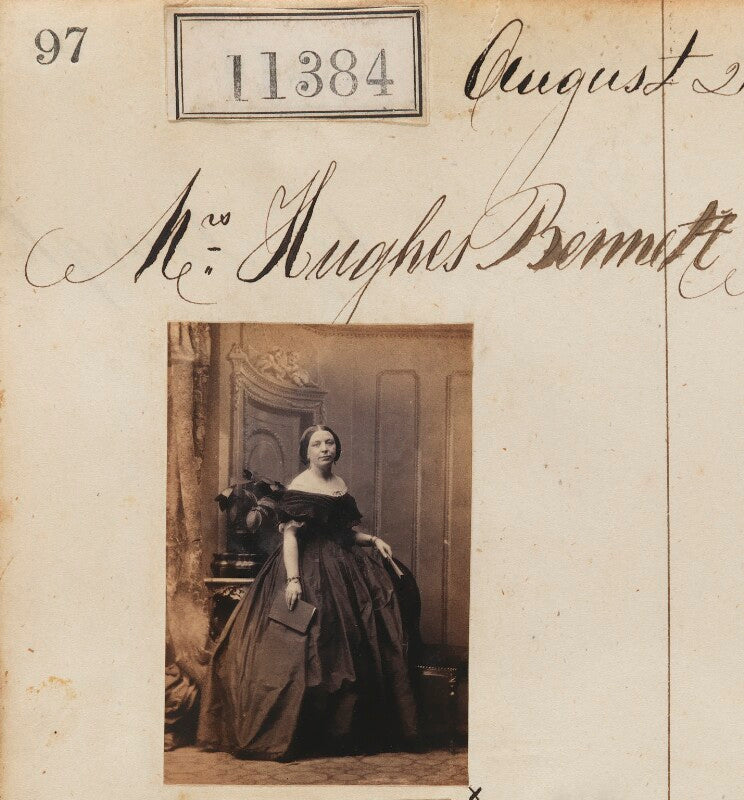 97
11384
August 2
Mrs Hughes Bennett
x